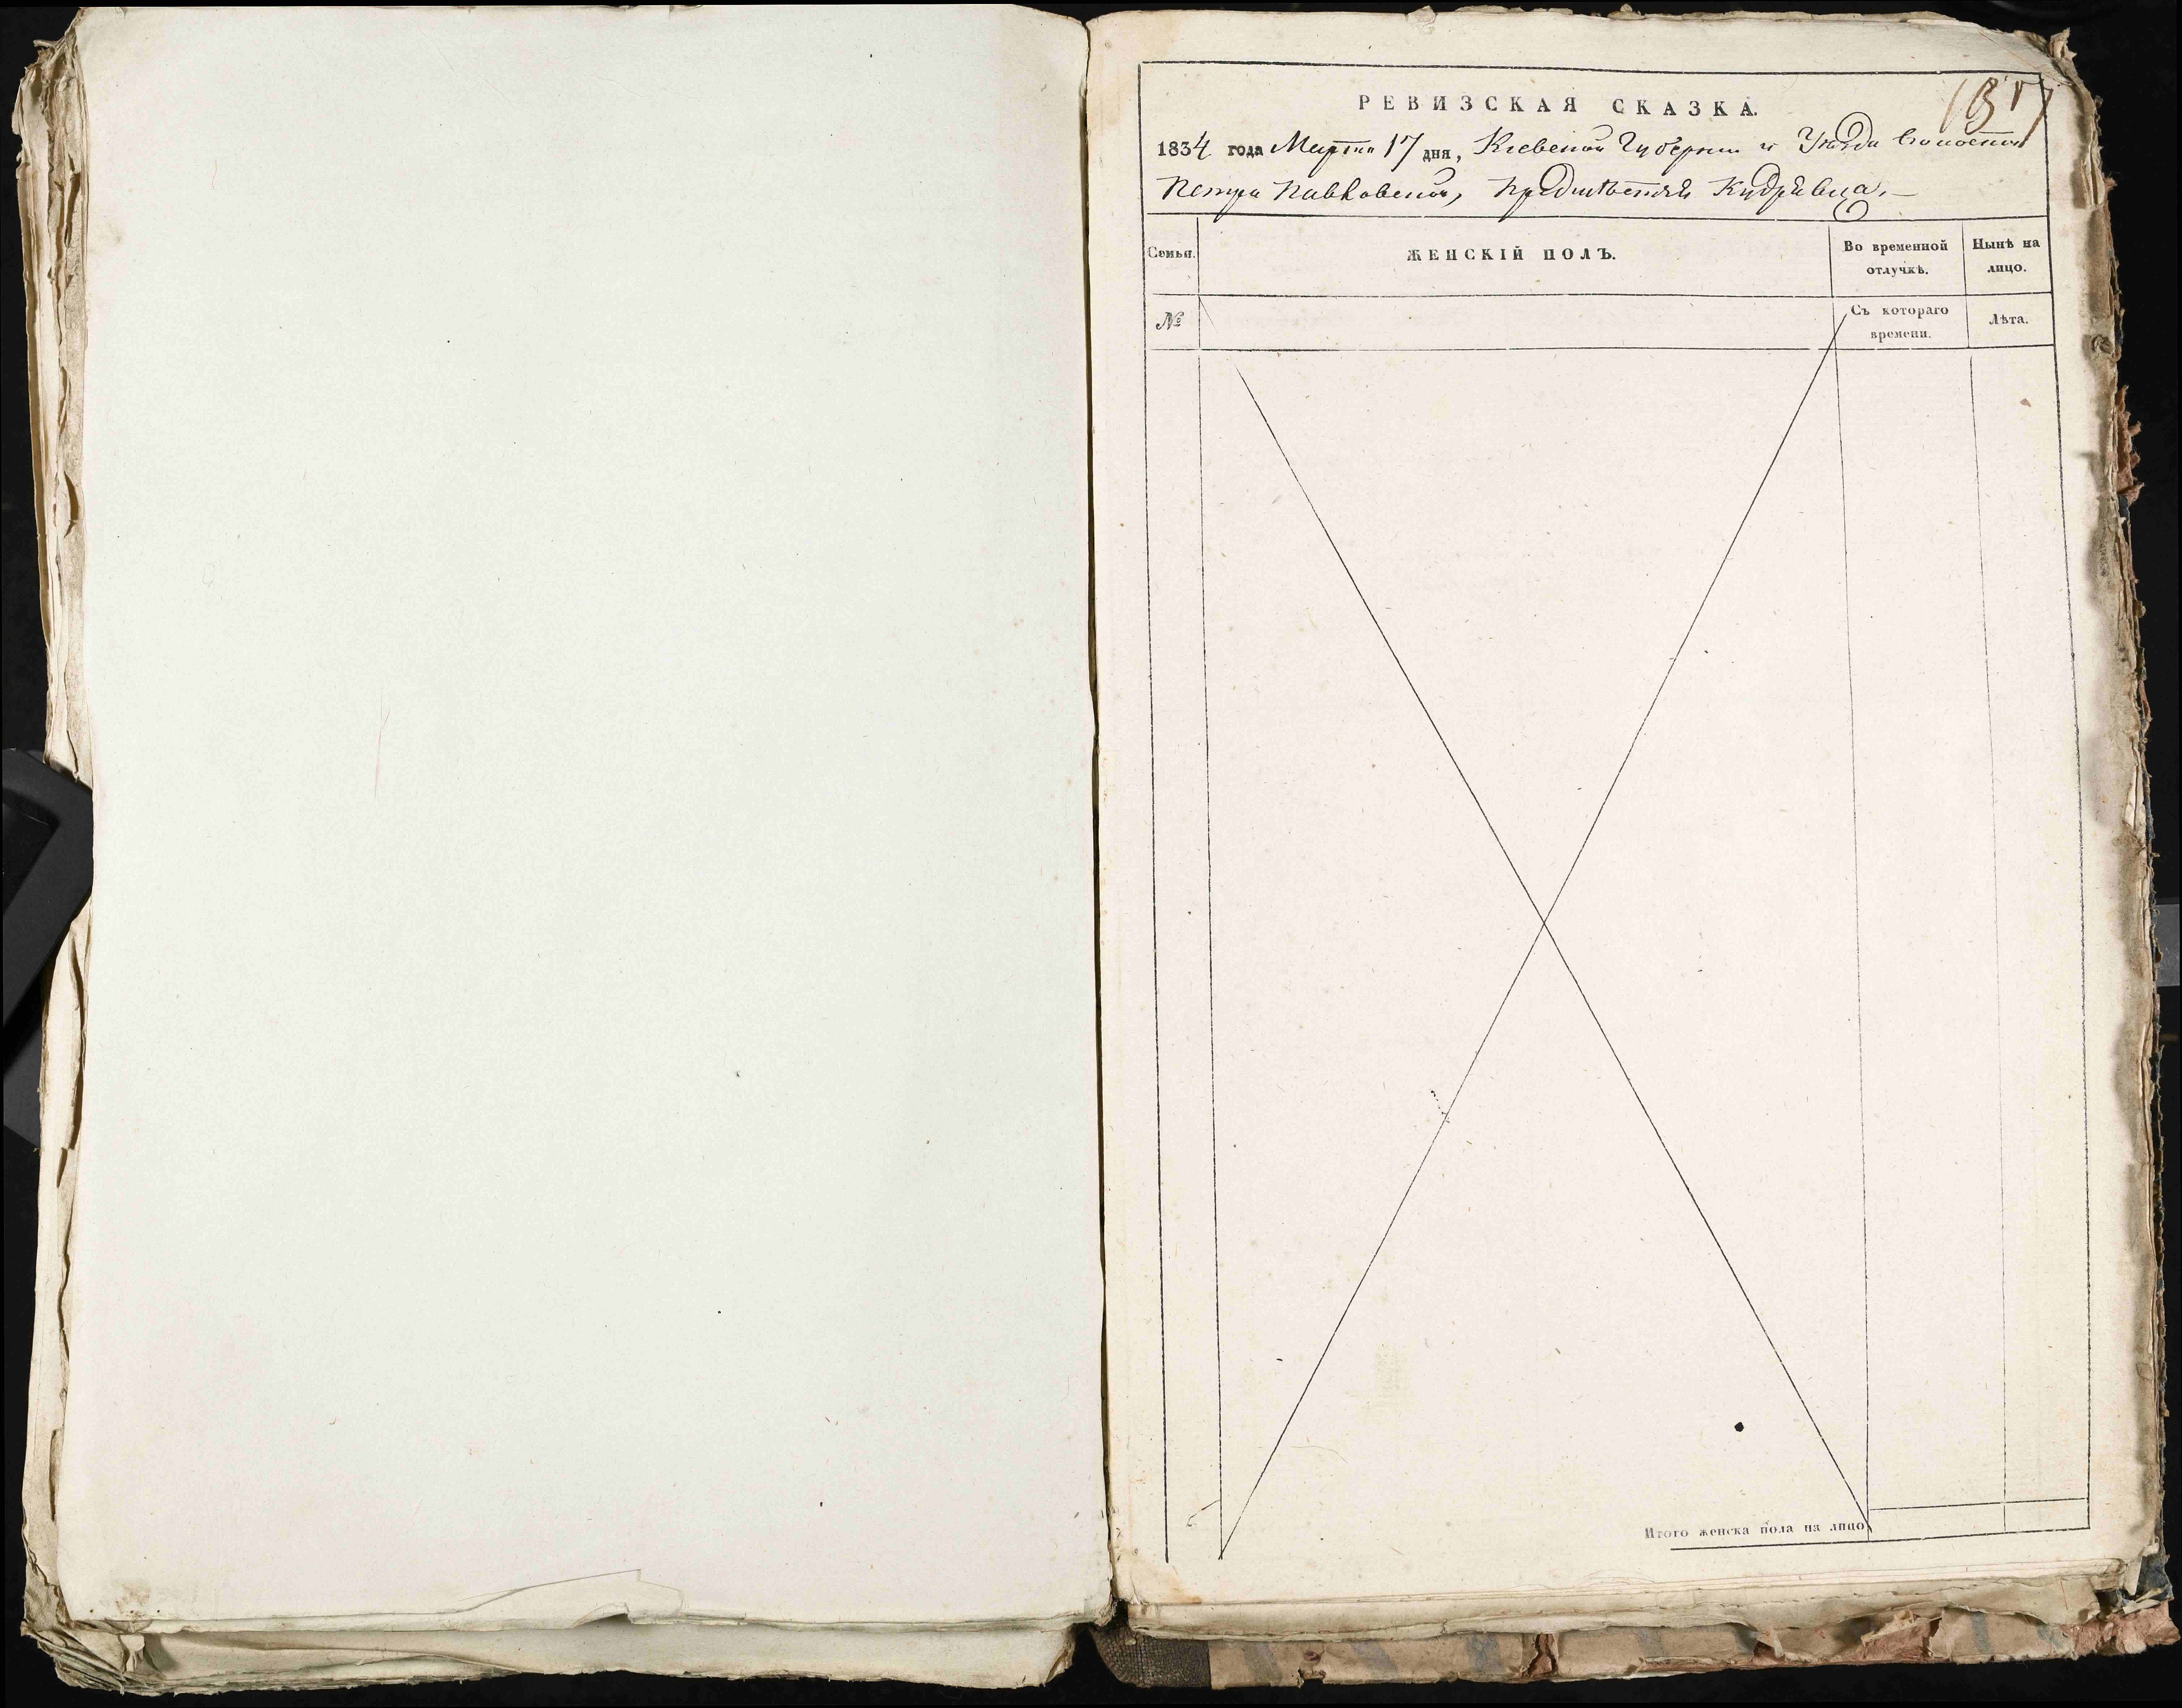 РЕВИЗСКАЯ СКАЗКА.
1834 года Марта 17 дня, Кіевской Губерніи и Уѣзда
Петро Павловской, предмѣстья Кудрявца,
Семьи.
ЖЕНСКІЙ ПОЛЪ.
Во временной отлучкѣ.
Нынѣ на лицо.
№
Съ котораго времени.
Лѣта.
Итого женска пола на лицо